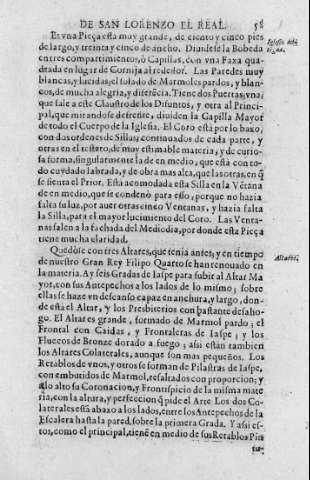 DE SAN LORENZO EL REAL. 58
Es vna Pieça esta muy grande, de ciento y cinco pies
de largo, y treinta y cinco de ancho. Diuidese la Bobeda
en tres compartimientos, ò Capillas, con vna Faxa quadrada
en lugar de Cornija al rededor. Las Paredes muy
blancas, y lucidas; el solado de Marmoles pardos, y blancos,
de mucha alegria, y diferēcia. Tiene dos Puertas, vna
que sale a este Claustro de los Difuntos, y otra al Principal,
que mirandose de frente, diuiden la Capilla Mayor
de todo el Cuerpo de la Iglesia. El Coro està por lo baxo,
con das ordenes de Sillas, continuados de cada parte, y
otras en el testero, de muy estimable materia; y de curiosa
forma, singularmente la de en medio, que està con todo
cuydado labrada, y de obra mas alta, que las otras, en q̃
se sienta el Prior. Està acomodada esta Silla en la Vētana
de en medio, que se condenò para esso, porque no hazia
falta su luz, por auer otras cinco Ventanas, y hazia falta
la Silla, para el mayor lucimiento del Coro. Las Ventanas
salen a la fachada del Mediodia, por donde esta Pieça
tiene mucha claridad.
Quedòse con tres Altares, que tenia antes, y en tiempo
de nuestro Gran Rey Filipo Quarto se han renouado en
la materia. Ay seis Gradas de Iaspe para subir al Altar Mayor,
con sus Antepechos a los lados de lo mismo; sobre
ellas se haze vn descanso capaz en anchura, y largo, donde
està el Altar, y los Presbiterios con bastante desahogo.
El Altar es grande, formado de Marmol pardo; el
Frontal con Caidas, y Frontaleras de Iaspe; y los
Fluecos de Bronze dorado a fuego; assi estàn tambien
los Altares Colaterales, aunque son mas pequeños. Los
Retablos de vnos, y otros se forman de Pilastras de Iaspe,
con embutidos de Marmol, resaltados con proporcion; y
a lo alto su Coronacion, y Frontispicio de la misma materia,
con la altura, y perfeccion q̃ pide el Arte. Los dos Colaterales
està abaxo a los lados, entre los Antepechos de la
Escalera hasta la pared, sobre la primera Grada. Y assi estos,
como el principal, tienē en medio de sus Retablos Pin
Iglesia
Altares.